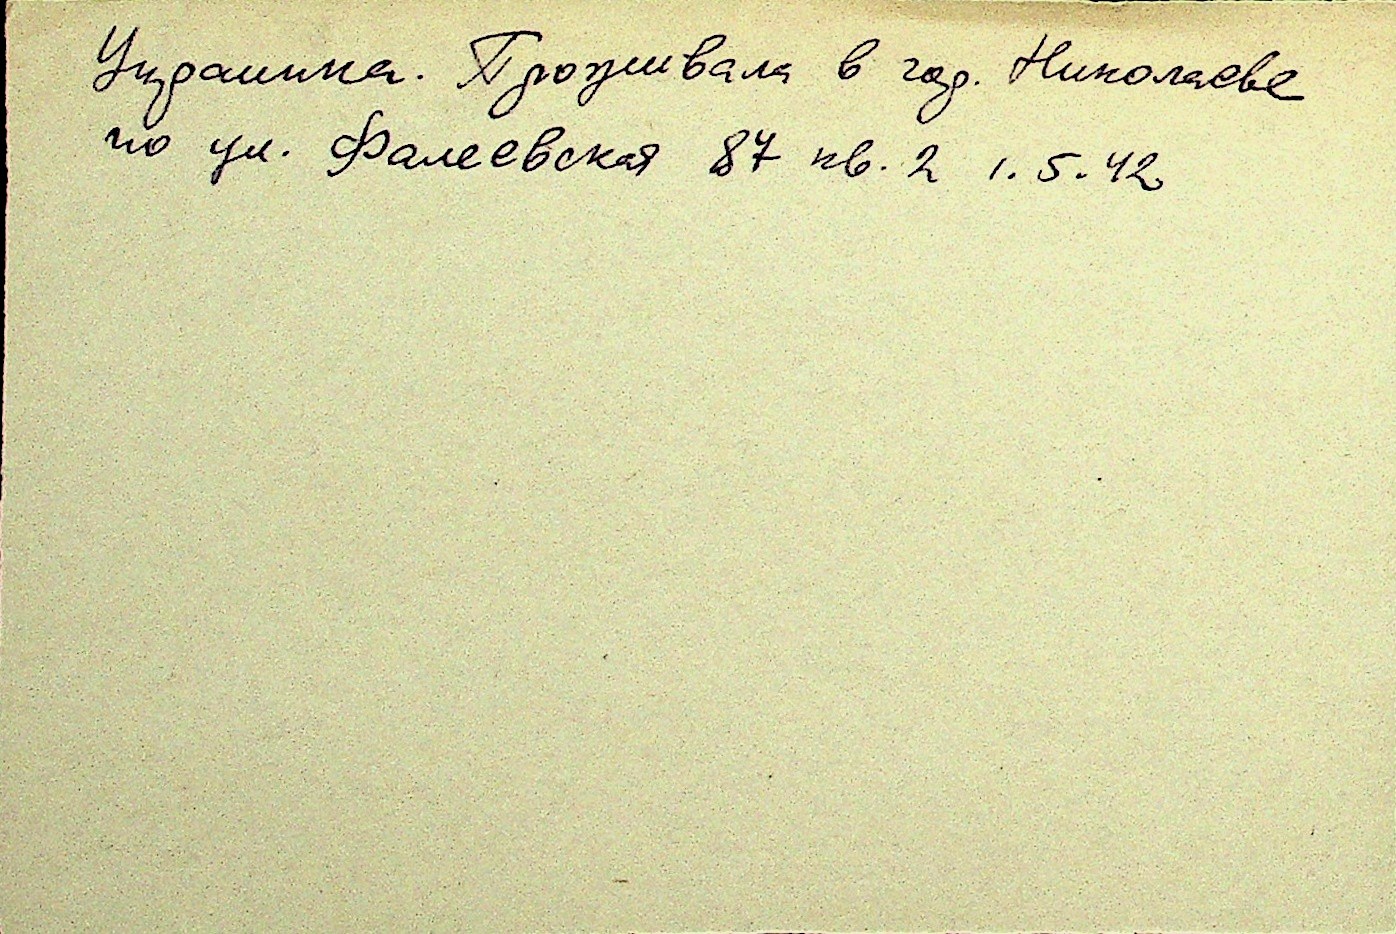 Украинка. Проживала в гор. Николаеве
по ул. Фалеевская 87 кв. 2 1.5.42